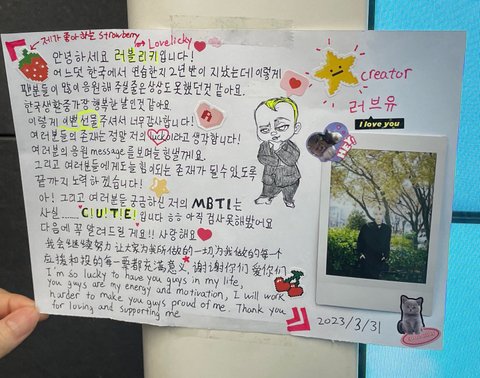 저가 좋아하는 strawberry
→ Lovelicky
안녕하세요 러블리키입니다!
어느덧 한국에서 연습한지 2년 반이 지났는데! 이렇게
팬분들이 많이 응원해 주실줄은 상상도 못했던것 같아요.
한국생활중 가장 행복한 날인것 같아요.
이렇게 이쁜 선물 주셔서 너무 감사합니다!
여러분들의 존재는 정말 저의 luck이라고 생각합니다!
여러분의 응원 message를 보며 늘 힘낼게요.
그리고 여러분들에게도 늘 힘이되는 존재가 될수 있도록
끝까지 노력하겠습니다!
아! 그리고 여러분들 궁금하신 저의 MBTI는
사실...... "C U T E" 입니다 ㅎㅎ 아직 검사 못해봤어요
다음에 꼭 알려드릴게요!! 사랑해요
我会继续努力 让大家为我所做的一切为我做的每个
应援和投的每一票都充满意义 谢谢你们 爱你们
I'm so lucky to have you guys in my life,
you guys are my energy and motivation, I will work
harder to make you guys proud of me. Thank you
for loving and supporting me
creator
러브유
I love you
2023/3/31